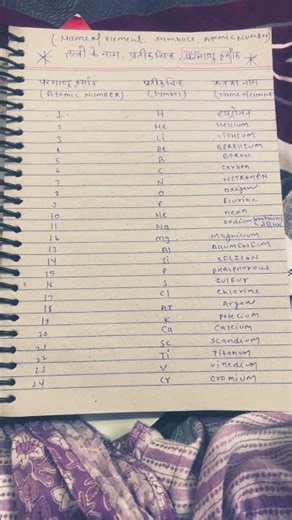 (Name of element, Symbols, Atomic Number)
तत्वों के नाम, प्रतीक चिन्ह, परमाणु क्रमाँक
परमाणु क्रमाँक प्रतीक चिन्ह तत्व का नाम
(Atomic Number) (Symbol) (Name of element)
1 H हाइड्रोजन
2 He Helium
3 Li Lithium
4 Be Berelium
5 B Boran
6 C Carbon
7 N Nitrogen
8 O Oxigen
9 F Flurine
10 Ne neon
11 Na Sodium
12 Mg Magnicium
13 Al Alluminium
14 Si Silicon
15 P Phasphorous
16 S Sulfur
17 Cl Chlorine
18 Ar Argon
19 K
20 Ca Calcium
21 Sc Scandium
22 Ti Titanum
23 V Vinedium
24 Cr Cromium